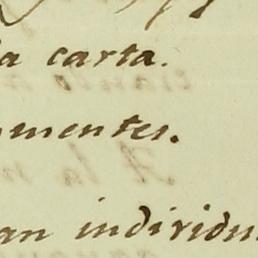 a carta.
mentes.
an individu